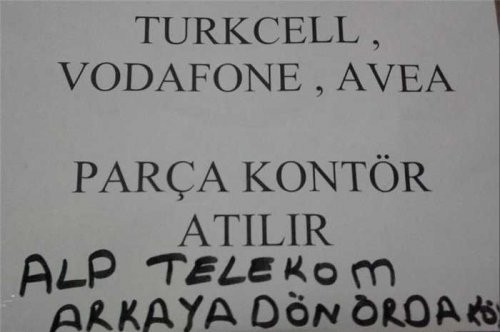 TURKCELL ,
VODAFONE , AVEA
PARÇA KONTÖR
ATILIR
ALP TELEKOM
ARKAYA DÖN ORDA KÖ